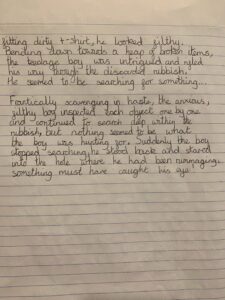 fitting dirty t-shirt, he looked filthy.
Bending down towards a heap of broken items,
the teenage boy was intrigued and rifled
his way through the discarded rubbish.
He seemed to be searching for something...
Frantically scavenging in haste, the anxious,
filthy boy inspected each object one by one
and continued to search deep within the
rubbish, but nothing seemed to be what
the boy was hunting for. Suddenly the boy
stopped searching, he stood back and stared
into the hole where he had been rummaging,
something must have caught his eye